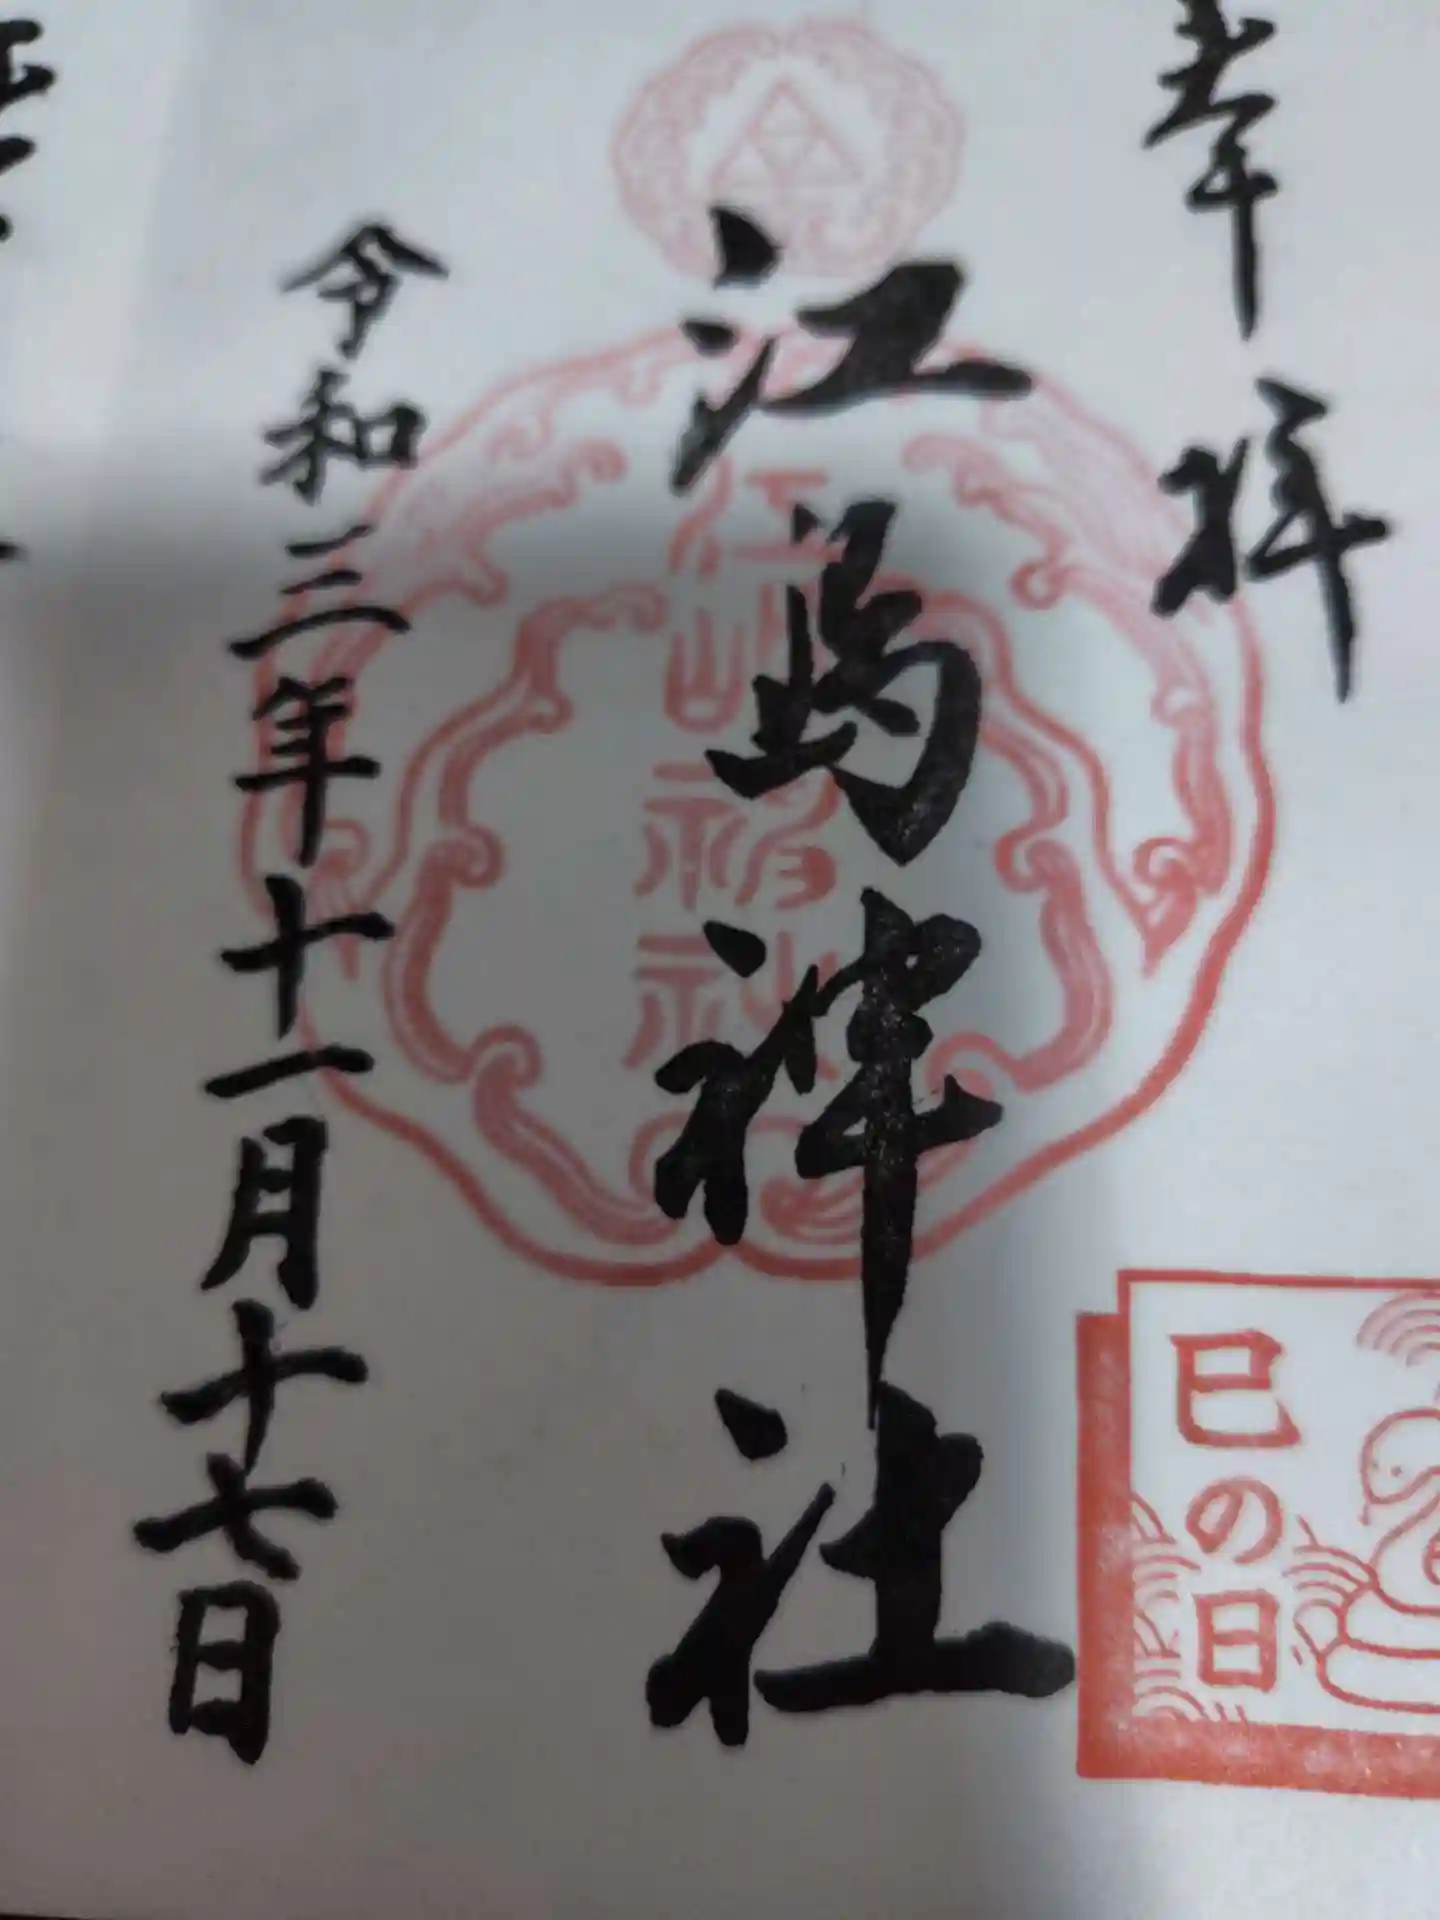 奉拝
江島神社
令和三年十一月十七日
江島神社
巳の日